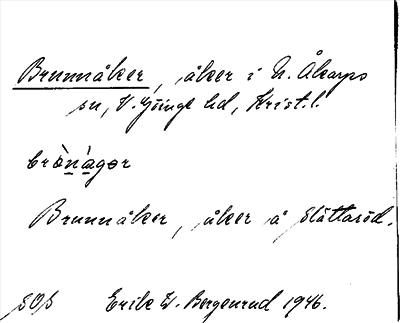 Brunnåker, åker i N. Åkarps
sn, V. Göinge hd, Krist. l.
brònàgər
Brunnåker, åker å Slättaröd.
Erik W. Bergenrud 1946.